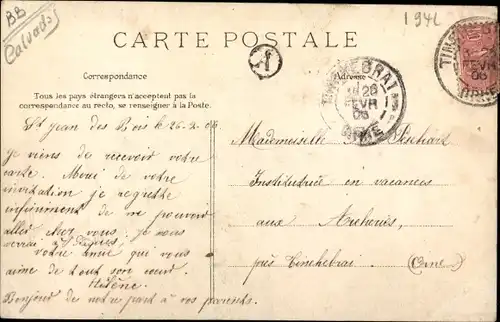 BB
Calvados
1942
CARTE POSTALE
A
TINCHEBRAI
26
FEVR
06
ORNE
TINCHEBRAI
FEVR
06
ORNE
Correspondance
Adresse
Tous les pays étrangers n'acceptent pas la
correspondance au recto, se renseigner à la Poste.
St Jean des Bois le 26-2-06
Je viens de recevoir votre
carte. Merci de votre
invitation je regrette
infiniment de ne pouvoir
aller chez vous. Je vous
verrai à Pâques;
votre amie qui vous
aime de tout son cœur.
Hélène.
Bonjour de notre part à vos parents.
Mademoiselle Pichard
Institutrice en vacances
aux
près Tinchebrai (Orne)